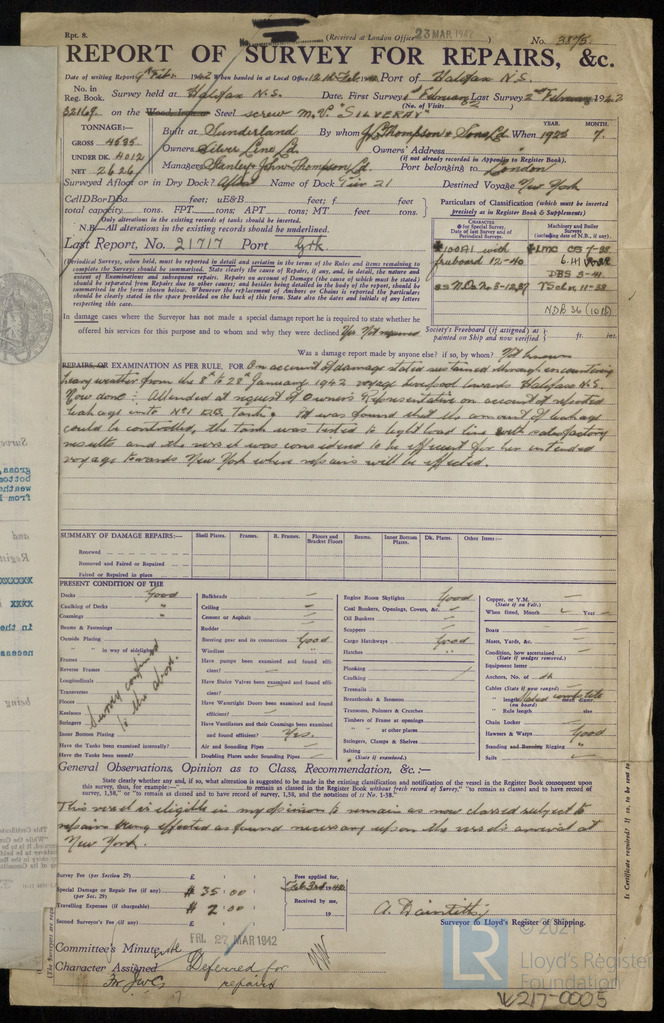 Rpt. 8.
(Received at London Office 23 MAR 1942
No. 3875.
REPORT OF SURVEY FOR REPAIRS, &c.
Date of writing Report 9th Feb. 1942 When handed in at Local Office 12th Feb. 1942 Port of Halifax N.S.
No. in Reg. Book.
Survey held at Halifax N.S. Date, First Survey 1st February Last Survey 2nd February 1942
(No. of Visits)
32169 on the Wood, Iron or Steel screw M.V. "SILVERAY"
TONNAGE:—
GROSS 4535
UNDER DK. 4012
NET 2626
Built at Sunderland By whom J. L. Thompson & Sons Ld. When 1925
YEAR. MONTH. 7.
Owners Silver Line Ld. Owners' Address
(if not already recorded in Appendix to Register Book).
Managers Stanley & John Thompson Ld. Port belonging to London
Surveyed Afloat or in Dry Dock? Afloat Name of Dock Pier 21 Destined Voyage New York
Cell D Bor DBa feet; uE&B feet; f feet
total capacity tons. FPT tons; APT tons; MT feet tons.
Only alterations in the existing records of tanks should be inserted.
N.B.—All alterations in the existing records should be underlined.
Last Report, No. 21717 Port
Particulars of Classification (which must be inserted
precisely as in Register Book & Supplements)
CHARACTER
for Special Survey, Date of last Survey and of Periodical Surveys.
Machinery and Boiler Surveys
(including date of N.B., if any).
100A1 with
freeboard 12-40
LMC
DBS 3-41
TS 11-38
NDB 36 (10 lb)
(Periodical Surveys, when held, must be reported in detail and seriatim in the terms of the Rules and items remaining to
complete the Surveys should be summarised. State clearly the cause of Repairs, if any, and, in detail, the nature and
extent of Examinations and subsequent repairs. Repairs on account of Damage (the cause of which must be stated)
should be separated from Repairs due to other causes; and besides being detailed in the body of the report, should be
summarized in the form shown below. Whenever the replacement of Anchors or Chains is reported the particulars
should be clearly stated in the space provided on the back of this form. State also the dates and initials of any letters
respecting this case.
In damage cases where the Surveyor has not made a special damage report he is required to state whether he
offered his services for this purpose and to whom and why they were declined Yes Not required
Society's Freeboard (if assigned) as
painted on Ship and now verified ft. ins.
Was a damage report made by anyone else? if so, by whom? Not known
REPAIRS, OR EXAMINATION AS PER RULE, FOR On account of damage stated sustained through encountering
heavy weather from the 8th to 28th January 1942 voyage Liverpool towards Halifax N.S.
Now done:- Attended at request of Owners Representative on account of reported
leakage into No 1 D.B. Tank. It was found that the amount of leakage
could be controlled, the tank was tested to light load line with satisfactory
results and the vessel was considered to be efficient for her intended
voyage towards New York where repairs will be effected.
SUMMARY OF DAMAGE REPAIRS:—
Shell Plates. Frames. R. Frames. Floors and Bracket Floors Beams. Inner Bottom Plates. Dk. Plates. Other Items:—
Renewed
Removed and Faired or Repaired
Faired or Repaired in place
PRESENT CONDITION OF THE
Decks Good
Caulking of Decks "
Coamings "
Beams & Fastenings
Outside Plating
" " in way of sidelights
Frames
Reverse Frames
Longitudinals
Transverses
Floors
Keelsons
Stringers
Inner Bottom Plating
Have the Tanks been examined internally?
Have the Tanks been tested?
Survey confined
to the above.
Bulkheads
Ceiling
Cement or Asphalt
Rudder
Steering gear and its connections Good
Windlass
Have pumps been examined and found efficient?
Have Sluice Valves been examined and found efficient?
Have Watertight Doors been examined and found efficient?
Have Ventilators and their Coamings been examined and found efficient? Yes.
Air and Sounding Pipes
Doubling Plates under Sounding Pipes
Engine Room Skylights Good
Coal Bunkers, Openings, Covers, &c.
Oil Bunkers
Scuppers
Cargo Hatchways Good
Hatches "
Planking
Caulking
Treenails
Breasthooks & Stemson
Transoms, Pointers & Crutches
Timbers of Frame at openings
" " at other places
Stringers, Clamps & Shelves
Salting
(State if examined.)
Copper, or Y.M.
(State if on Felt.)
When fitted, Month Year
Boats
Masts, Yards, &c.
Condition, how ascertained
(State if wedges removed.)
Equipment letter
Anchors, No. of
Cables (State if now ranged)
" length (on board) Stated complete
" Rule length size
Chain Locker
Hawsers & Warps Good
Standing and Running Rigging "
Sails
General Observations, Opinion as to Class, Recommendation, &c. :—
State clearly whether any and, if so, what alteration is suggested to be made in the existing classification and notification of the vessel in the Register Book consequent upon
this survey, thus, for example:—" to remain as classed in the Register Book without fresh record of Survey," "to remain as classed and to have record of
survey, 1,38," or "to remain as classed and to have record of survey, 1,38, and the notations of ss No. 1-38."
This vessel is eligible in my opinion to remain as now classed subject to
repairs being effected as found necessary upon the vessel's arrival at
New York.
Survey Fee (per Section 29) £
Special Damage or Repair Fee (if any) (per Sec. 29) $ 35.00
Travelling Expenses (if chargeable) $ 2.00
Second Surveyor's Fee (if any) £
Fees applied for,
Received by me,
19
A. Daintith
Surveyor to Lloyd's Register of Shipping.
Committee's Minute
FRI. 27 MAR 1942
Character Assigned Deferred for
repairs
Is Certificate required? If so, to be sent to
LR
Lloyd's Register
Foundation
W217-0005